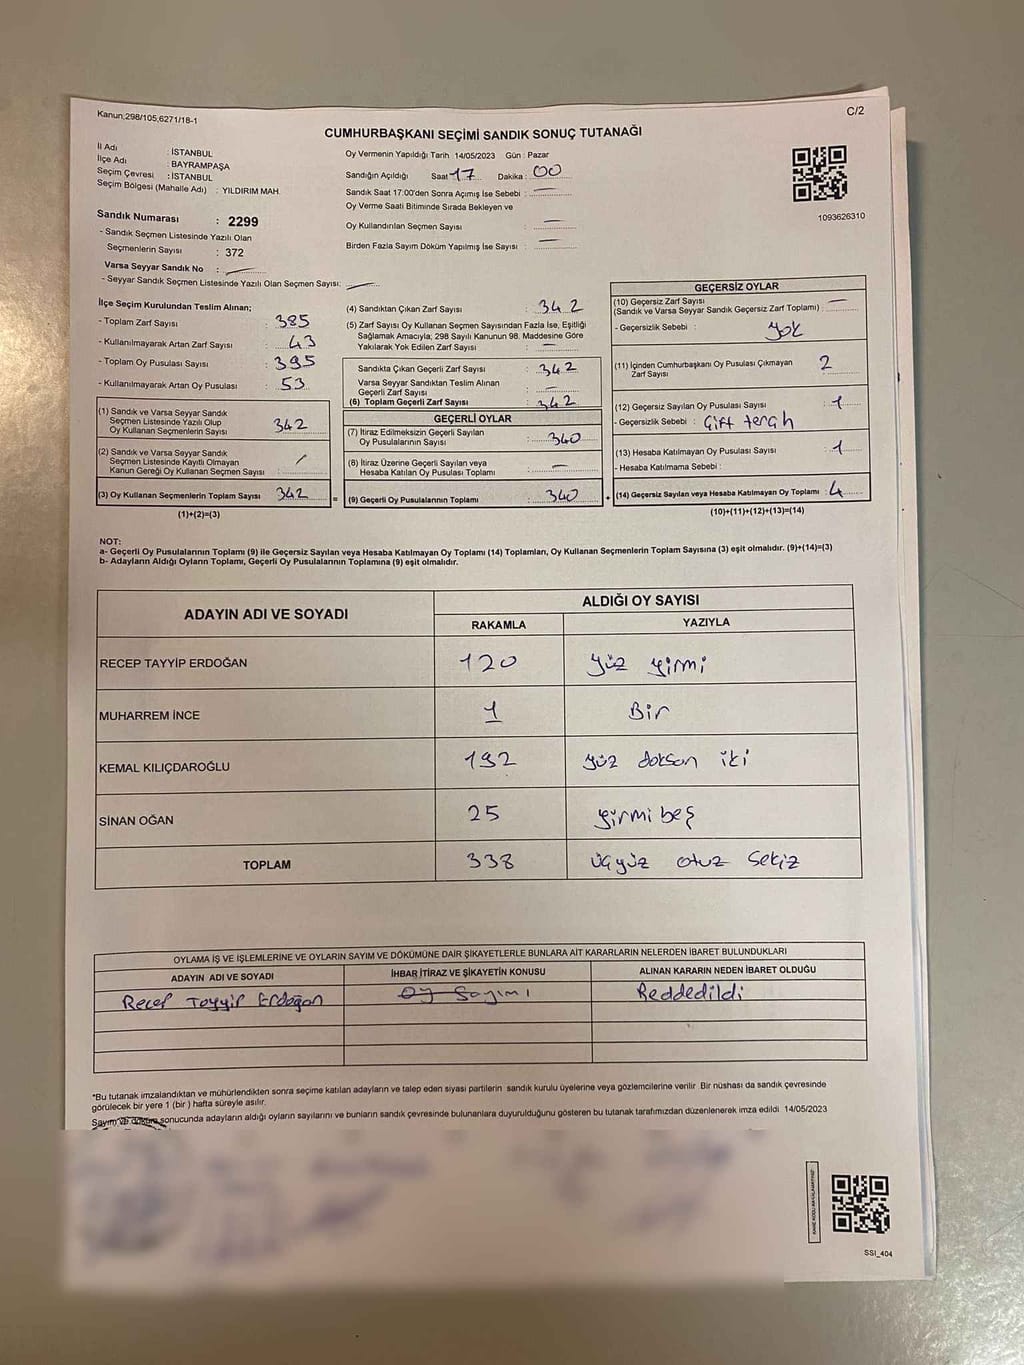 Kanun:298/105,6271/18-1
C/2
CUMHURBAŞKANI SEÇİMİ SANDIK SONUÇ TUTANAĞI
İl Adı : İSTANBUL
İlçe Adı : BAYRAMPAŞA
Seçim Çevresi : İSTANBUL
Seçim Bölgesi (Mahalle Adı) : YILDIRIM MAH.
Sandık Numarası : 2299
- Sandık Seçmen Listesinde Yazılı Olan
Seçmenlerin Sayısı : 372
Varsa Seyyar Sandık No :
- Seyyar Sandık Seçmen Listesinde Yazılı Olan Seçmen Sayısı:
Oy Vermenin Yapıldığı Tarih 14/05/2023 Gün : Pazar
Sandığın Açıldığı Saat 17 Dakika : 00
Sandık Saat 17:00'den Sonra Açımış İse Sebebi : —
Oy Verme Saati Bitiminde Sırada Bekleyen ve
Oy Kullandırılan Seçmen Sayısı : —
Birden Fazla Sayım Döküm Yapılmış İse Sayısı : —
1093626310
İlçe Seçim Kurulundan Teslim Alınan;
- Toplam Zarf Sayısı : 385
- Kullanılmayarak Artan Zarf Sayısı : 43
- Toplam Oy Pusulası Sayısı : 395
- Kullanılmayarak Artan Oy Pusulası : 53
(1) Sandık ve Varsa Seyyar Sandık
Seçmen Listesinde Yazılı Olup
Oy Kullanan Seçmenlerin Sayısı : 342
(2) Sandık ve Varsa Seyyar Sandık
Seçmen Listesinde Kayıtlı Olmayan
Kanun Gereği Oy Kullanan Seçmen Sayısı :
(3) Oy Kullanan Seçmenlerin Toplam Sayısı : 342
(1)+(2)=(3)
(4) Sandıktan Çıkan Zarf Sayısı : 342
(5) Zarf Sayısı Oy Kullanan Seçmen Sayısından Fazla İse, Eşitliği
Sağlamak Amacıyla; 298 Sayılı Kanunun 98. Maddesine Göre
Yakılarak Yok Edilen Zarf Sayısı : —
Sandıkta Çıkan Geçerli Zarf Sayısı : 342
Varsa Seyyar Sandıktan Teslim Alınan
Geçerli Zarf Sayısı : —
(6) Toplam Geçerli Zarf Sayısı : 342
GEÇERLİ OYLAR
(7) İtiraz Edilmeksizin Geçerli Sayılan
Oy Pusulalarının Sayısı : 340
(8) İtiraz Üzerine Geçerli Sayılan veya
Hesaba Katılan Oy Pusulası Toplamı : —
(9) Geçerli Oy Pusulalarının Toplamı : 340
=
+
GEÇERSİZ OYLAR
(10) Geçersiz Zarf Sayısı
(Sandık ve Varsa Seyyar Sandık Geçersiz Zarf Toplamı) : —
- Geçersizlik Sebebi : Yok
(11) İçinden Cumhurbaşkanı Oy Pusulası Çıkmayan
Zarf Sayısı : 2
(12) Geçersiz Sayılan Oy Pusulası Sayısı : 1
- Geçersizlik Sebebi : Çift tercih
(13) Hesaba Katılmayan Oy Pusulası Sayısı : 1
- Hesaba Katılmama Sebebi :
(14) Geçersiz Sayılan veya Hesaba Katılmayan Oy Toplamı : 4
(10)+(11)+(12)+(13)=(14)
NOT:
a- Geçerli Oy Pusulalarının Toplamı (9) ile Geçersiz Sayılan veya Hesaba Katılmayan Oy Toplamı (14) Toplamları, Oy Kullanan Seçmenlerin Toplam Sayısına (3) eşit olmalıdır. (9)+(14)=(3)
b- Adayların Aldığı Oyların Toplamı, Geçerli Oy Pusulalarının Toplamına (9) eşit olmalıdır.
ADAYIN ADI VE SOYADI
ALDIĞI OY SAYISI
RAKAMLA YAZIYLA
RECEP TAYYİP ERDOĞAN 120 yüz yirmi
MUHARREM İNCE 1 Bir
KEMAL KILIÇDAROĞLU 192 yüz doksan iki
SİNAN OĞAN 25 yirmi beş
TOPLAM 338 üçyüz otuz sekiz
OYLAMA İŞ VE İŞLEMLERİNE VE OYLARIN SAYIM VE DÖKÜMÜNE DAİR ŞİKAYETLERLE BUNLARA AİT KARARLARIN NELERDEN İBARET BULUNDUKLARI
ADAYIN ADI VE SOYADI İHBAR,İTİRAZ VE ŞİKAYETİN KONUSU ALINAN KARARIN NEDEN İBARET OLDUĞU
Recep Tayyip Erdoğan Oy Sayımı Reddedildi
*Bu tutanak imzalandıktan ve mühürlendikten sonra seçime katılan adayların ve talep eden siyasi partilerin sandık kurulu üyelerine veya gözlemcilerine verilir. Bir nüshası da sandık çevresinde
görülecek bir yere 1 (bir ) hafta süreyle asılır.
Sayım ve döküm sonucunda adayların aldığı oyların sayılarını ve bunların sandık çevresinde bulunanlara duyurulduğunu gösteren bu tutanak tarafımızdan düzenlenerek imza edildi. 14/05/2023
SSI_404